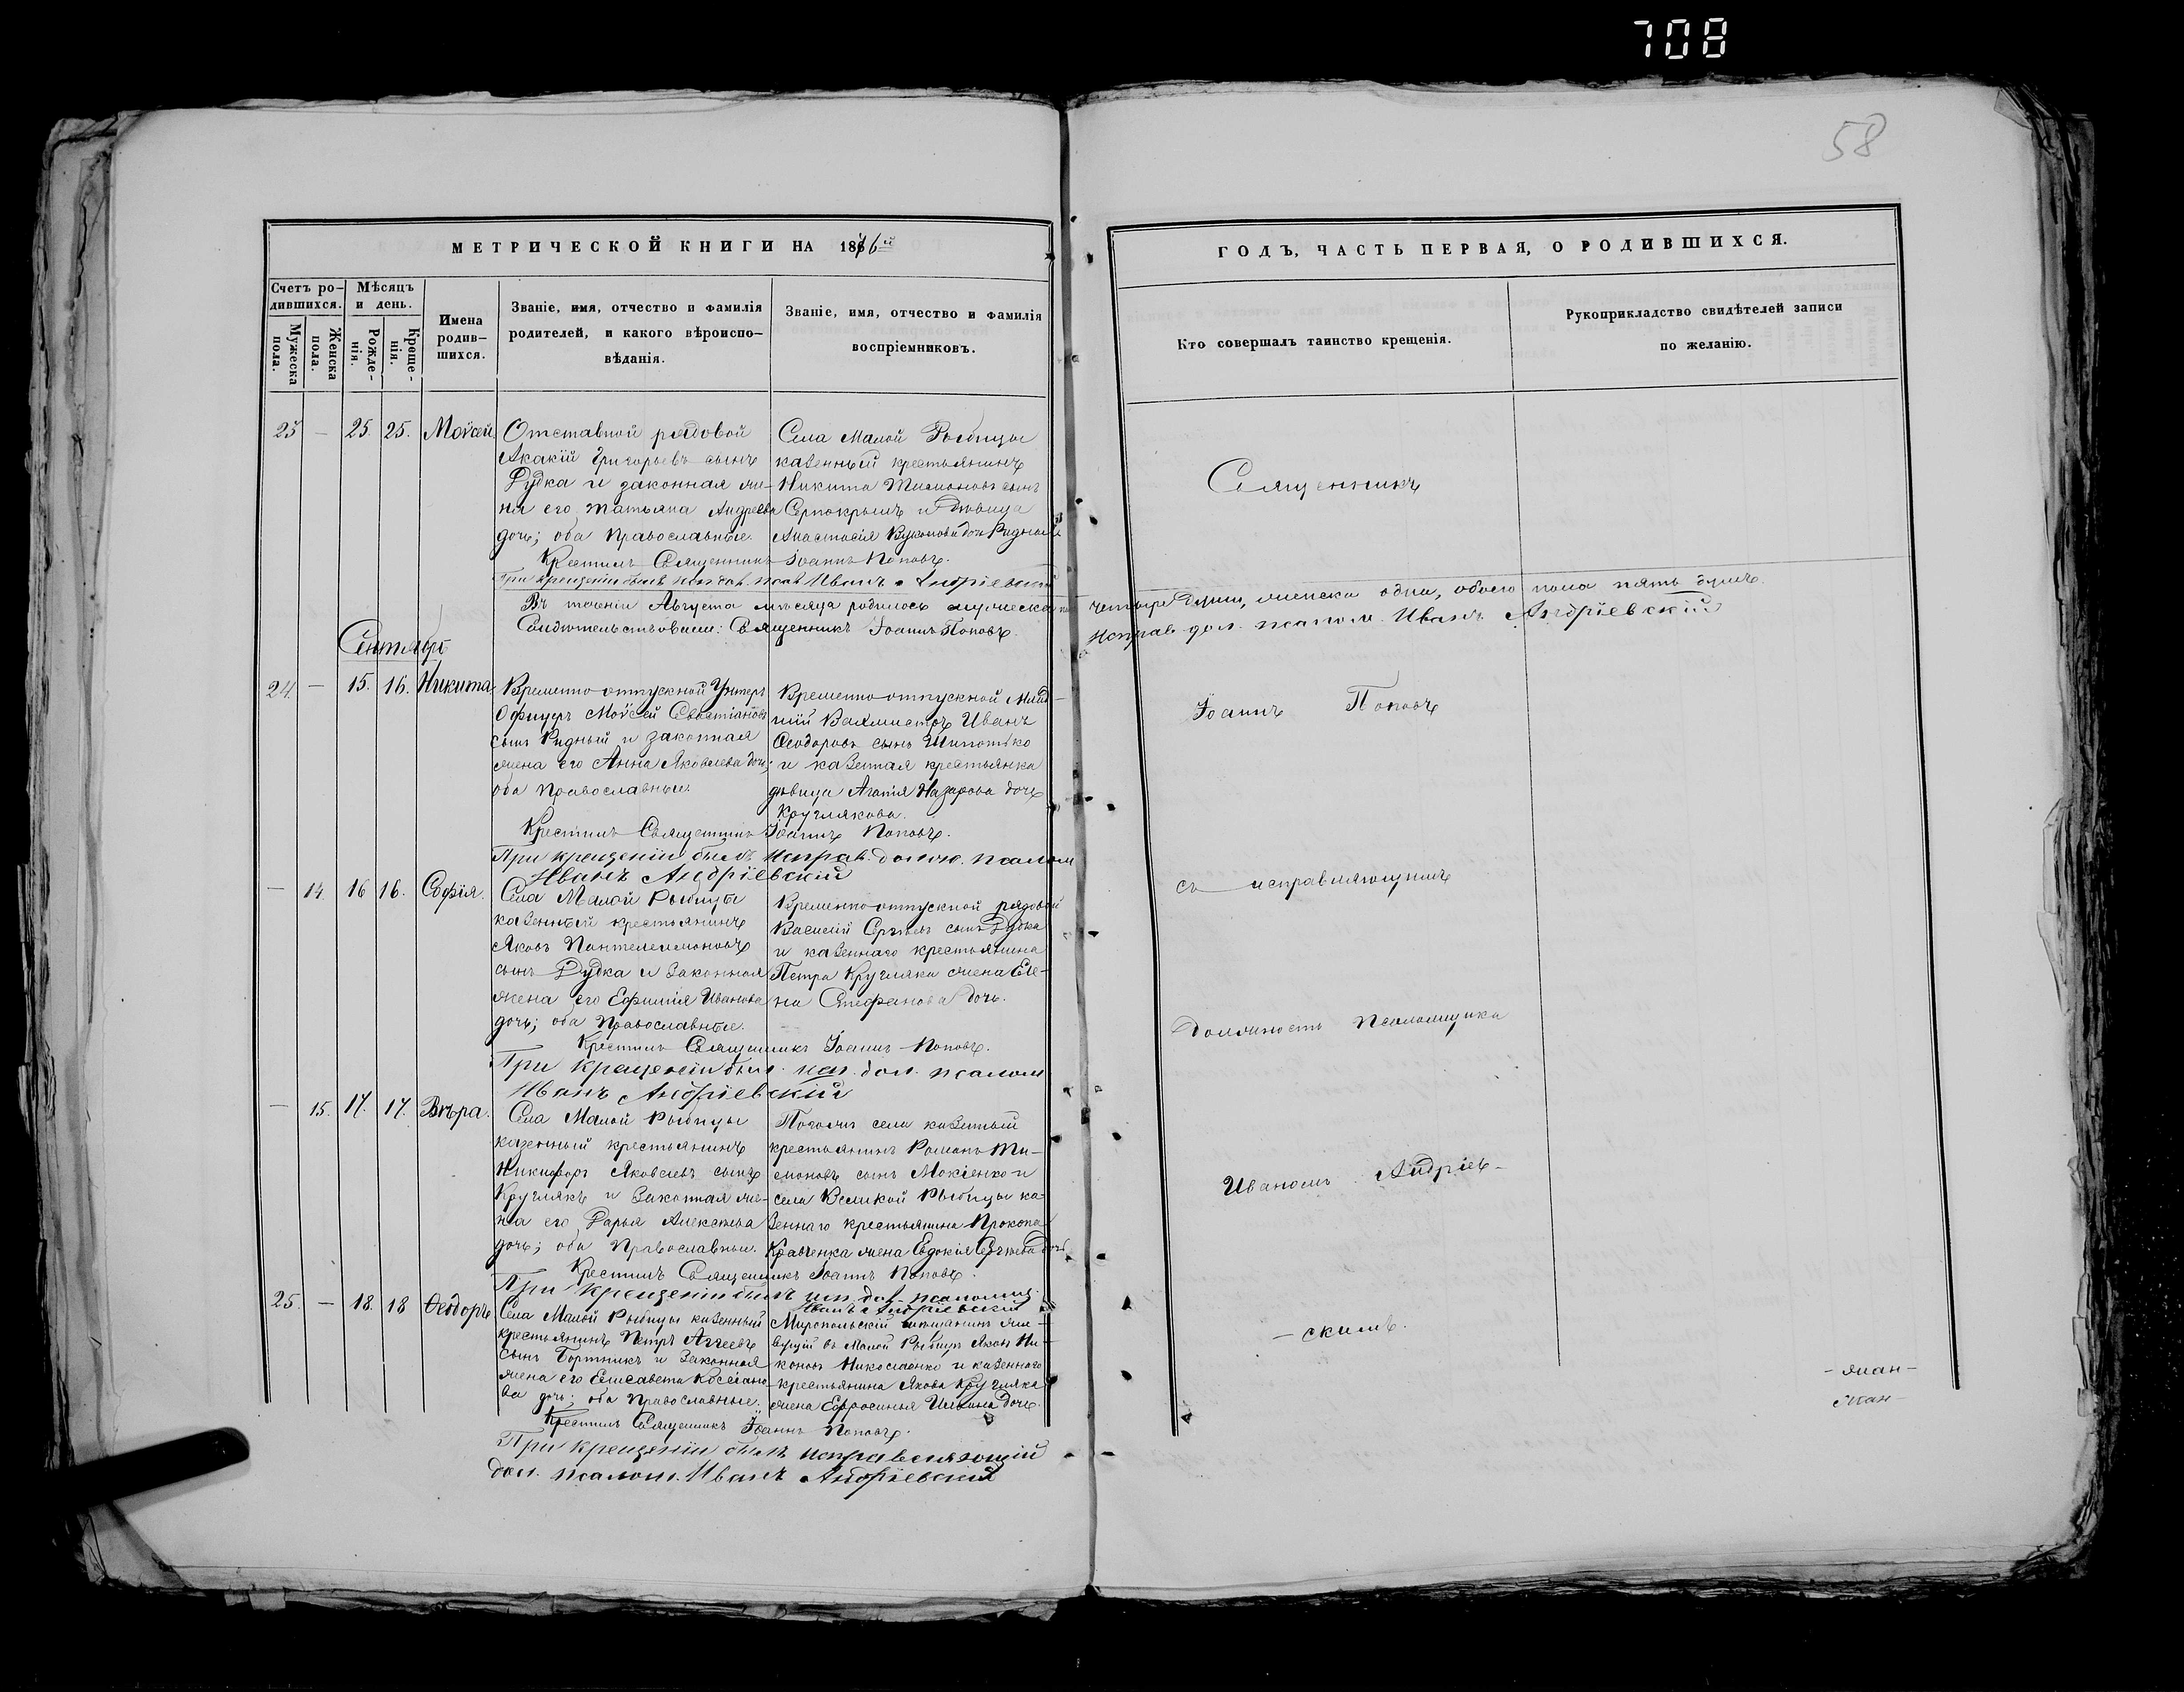 708
58
МЕТРИЧЕСКОЙ КНИГИ НА 1876й
Счетъ ро-
дившихся.
Мужеска
пола.
Женска
пола.
Мѣсяцъ
и день.
Рожде-
нія.
Креще-
нія.
Имена
родив-
шихся.
Званіе, имя, отчество и фамилія
родителей, и какого вѣроиспо-
вѣданія.
Званіе, имя, отчество и фамилія
воспріемниковъ.
23 — 25. 25. Моѵсей
Отставной рядовой
Акакій Григорьевъ сынъ
Дудка и законная же-
на его Татьяна Андреева
дочь; оба Православные.
Села Малой Рыбицы
казенный крестьянинъ
Никита сынъ
и дѣвица
Анастасія
Крестилъ Священникъ Іоаннъ Поповъ.
При крещеніи былъ исп. дол. псал. Иванъ Андріевскій
Въ теченіи Августа мѣсяца родилось мужеска
Свидѣтельствовали: Священникъ Іоаннъ Поповъ.
Сентябрь
24. — 15. 16. Никита
Временно-отпускной Унтеръ
Офицеръ Моѵсей Севастіановъ
сынъ Ридный и законная
жена его Анна Яковлева дочь;
оба Православные.
Временно-отпускной Млад-
шій Вахмистръ Иванъ
Ѳеодоровъ сынъ
и казенная крестьянка
дѣвица Агапія Назарова дочь
Круглякова.
Крестилъ Священникъ Іоаннъ Поповъ.
При крещеніи былъ Исправ. долж. псалом
Иванъ Андріевскій
— 14. 16 16. Софія.
Села Малой Рыбицы
казенный крестьянинъ
Яковъ Пантелеимоновъ
сынъ Дудка и Законная
жена его Ефимія Иванова
дочь; оба Православные.
Временно-отпускной рядовой
Василій Сергѣевъ сынъ Дудка
и казеннаго крестьянина
Петра Кругляка жена Еле-
на Стефанова дочь.
Крестилъ Священникъ Іоаннъ Поповъ.
При крещеніи былъ исп. дол. псалом
Иванъ Андріевскій
— 15. 17. 17. Вѣра.
Села Малой Рыбицы
казенный крестьянинъ
Никифоръ Яковлевъ сынъ
Круглякъ и Законная же-
на его Дарья Алексѣева
дочь; оба Православные.
Тогожъ села казенный
крестьянинъ Романъ Ти-
моновъ сынъ Мокіенко и
села Великой Рыбицы ка-
зеннаго крестьянина Прокопа
Кравченка жена Евдокія Сергѣева дочь
Крестилъ Священникъ Іоаннъ Поповъ.
При крещеніи былъ исп. дол. псаломщ.
Иванъ Андріевскій
25. — 18. 18 Ѳеодоръ
Села Малой Рыбицы казенный
крестьянинъ Петръ Аггеевъ
сынъ Бортникъ и Законная
жена его Елисавета Кассіано-
ва дочь; оба Православные.
Миропольскій мѣщанинъ жи-
вущій въ Малой Рыбицѣ Яковъ Ни-
коновъ Николаенко и казеннаго
крестьянина Якова Кругляка
жена Ефросинья Ильина дочь.
Крестилъ Священникъ Іоаннъ Поповъ.
При крещеніи былъ исправляющій
дол. псалом. Иванъ Андріевскій
ГОДЪ, ЧАСТЬ ПЕРВАЯ, О РОДИВШИХСЯ.
Кто совершалъ таинство крещенія.
Рукоприкладство свидѣтелей записи
по желанію.
Священникъ
четыре души, женска одна, обоего пола пять душъ.
Исправ. дол. псалом. Иванъ Андріевскій
Іоаннъ Поповъ
съ исправляющимъ
должность Псаломщика
Иваномъ Андріев-
-скимъ.